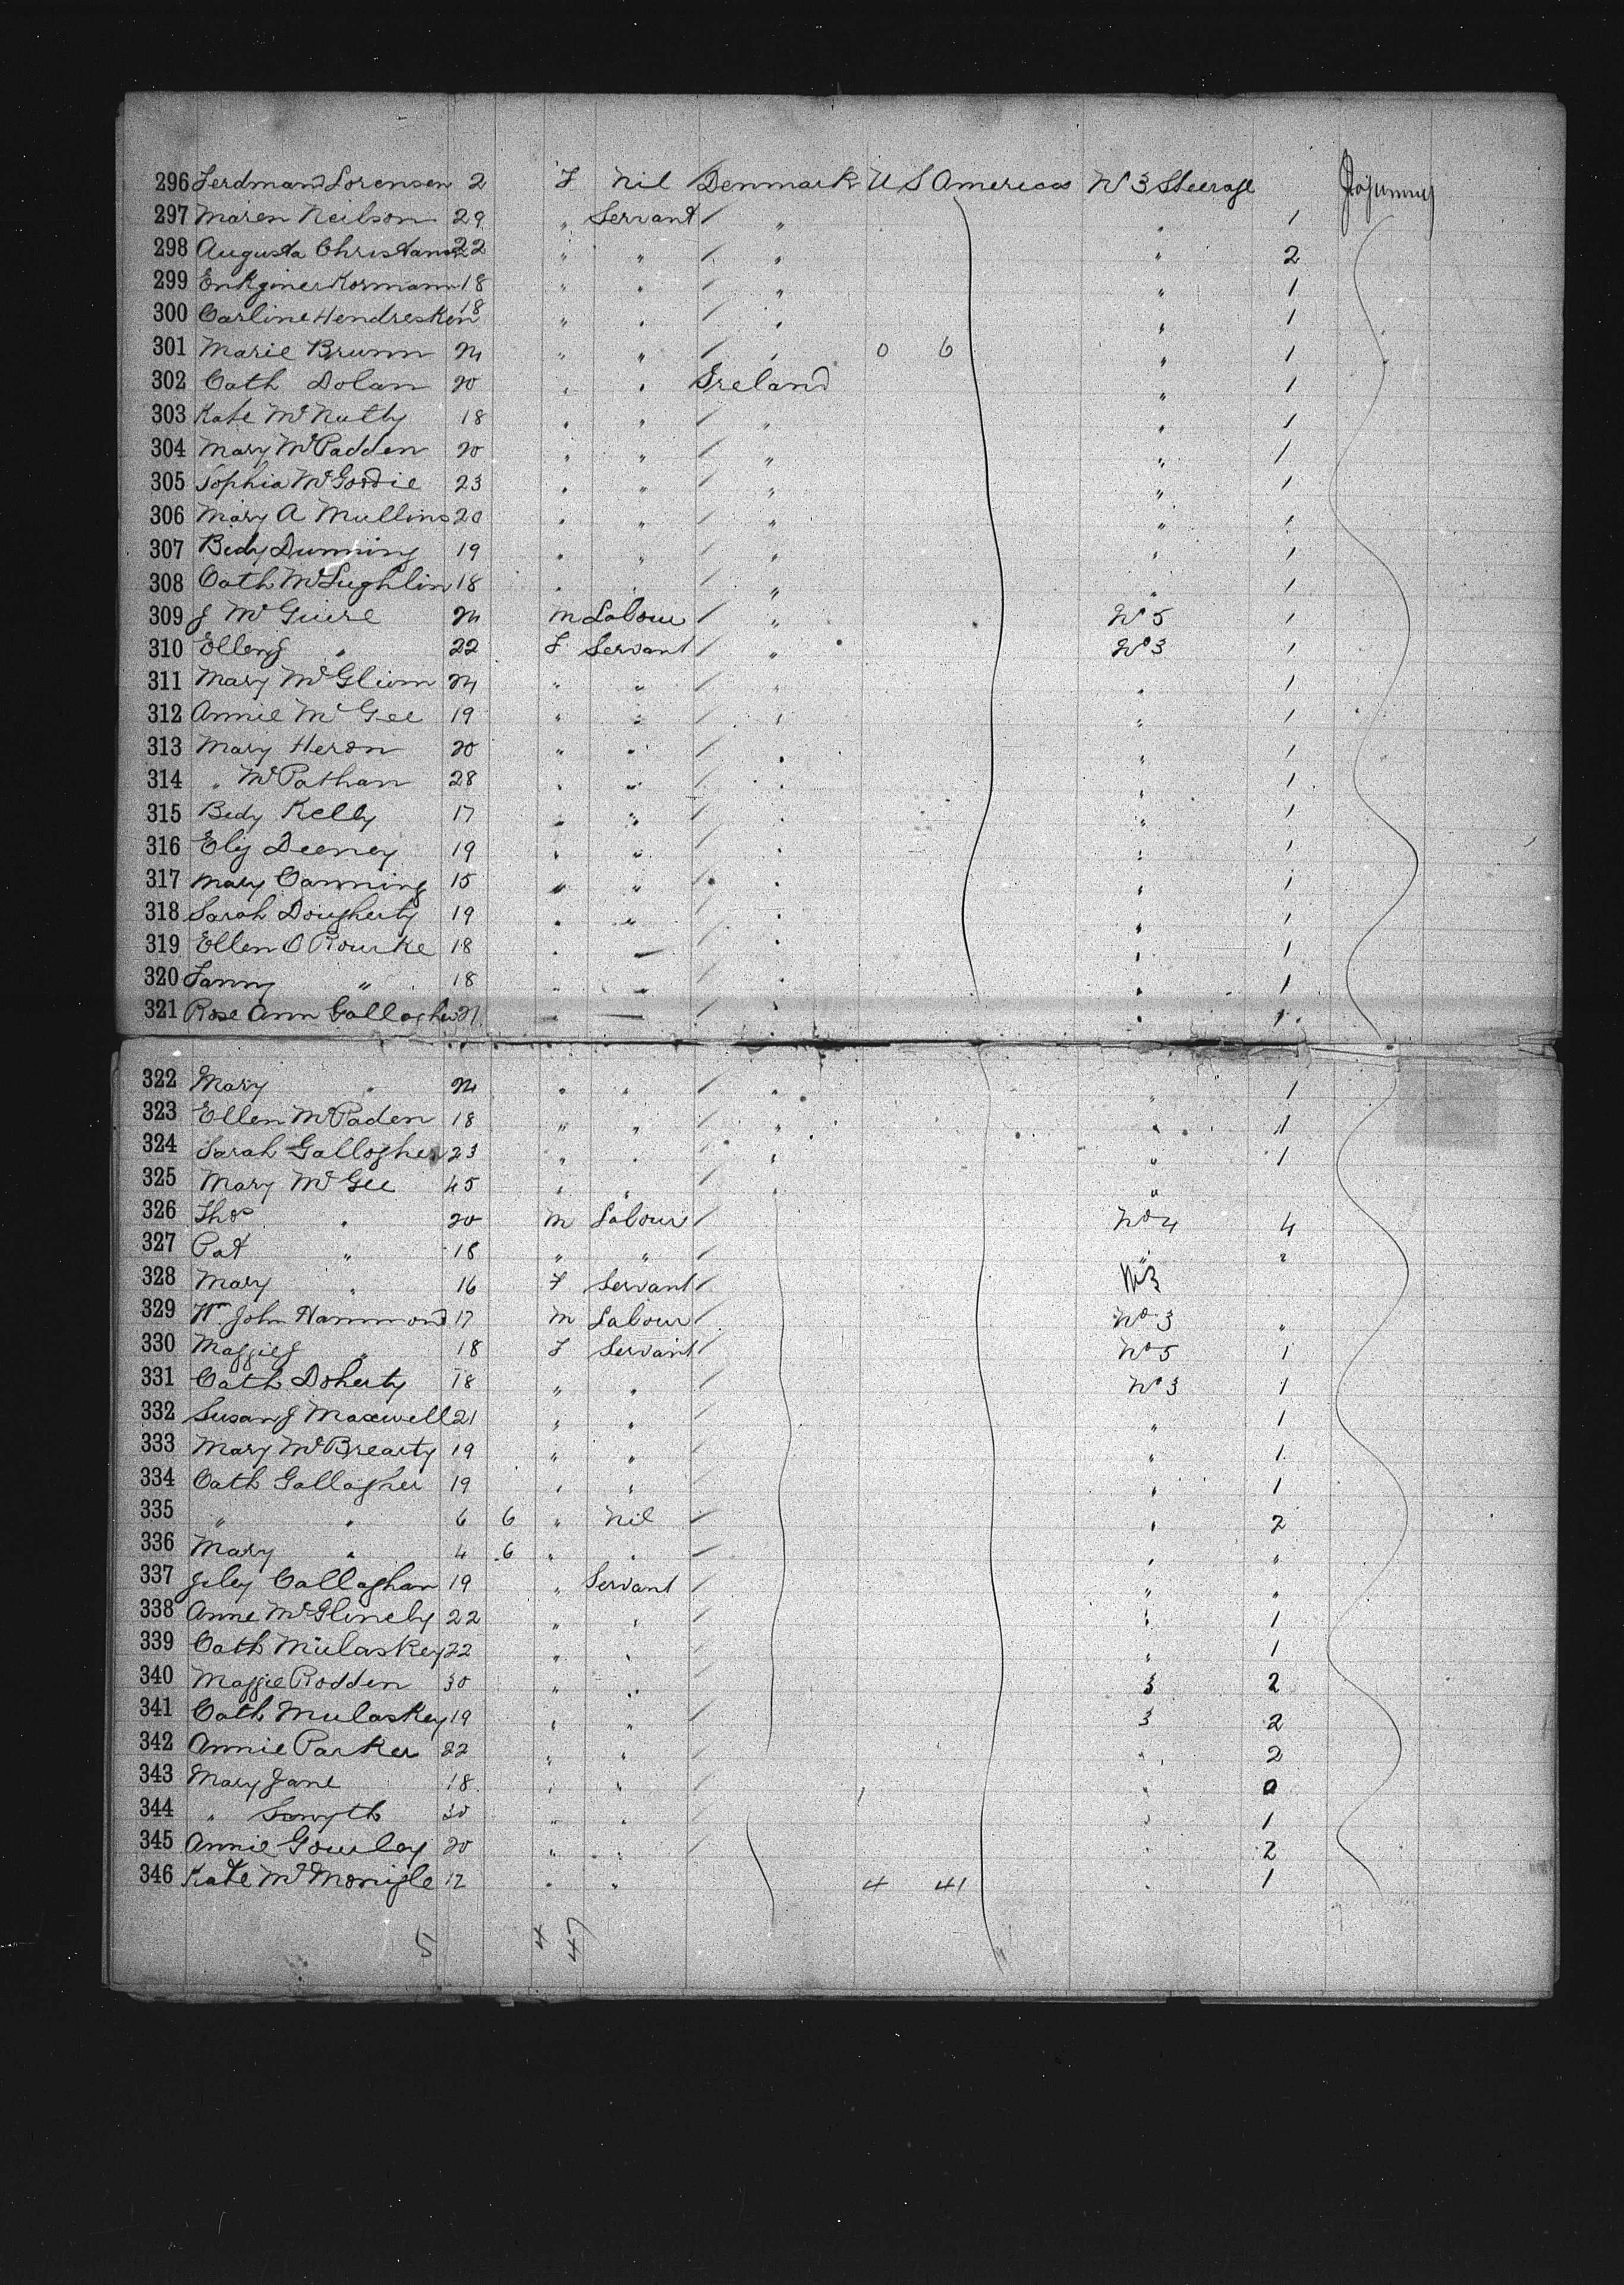 296 Ferdmand Lorensen 2 F Nil Denmark U S America No 3 Steerage
297 Maren Neilson 29 " Servant / " " 1
298 Augusta Christians 22 " " / " " 2
299 18 " " / " " 1
300 Carline Hendresken 18 " " / " " 1
301 Marie Brunn 24 " " / " 0 6 " 1
302 Cath Dolan 20 " " Ireland " 1
303 Kate McNulty 18 " " / " " 1
304 Mary McPadden 20 " " / " " 1
305 Sophia McGordie 23 " " / " " 1
306 Mary A Mullins 20 " " / " " 1
307 Bedy Dunning 19 " " / " " 1
308 Cath McLughlin 18 " " / " " 1
309 J McGuire 24 M Labour / " No 5 1
310 Ellen J " 22 F Servant / " No 3 1
311 Mary McGlinn 24 " " / " " 1
312 Annie McGee 19 " " / " " 1
313 Mary Heron 20 " " / " " 1
314 " McPathan 28 " " / " " 1
315 Bedy Kelly 17 " " / " " 1
316 Eliz Deeney 19 " " / " " 1
317 Mary Canning 15 " " / " " 1
318 Sarah Dougherty 19 " " / " " 1
319 Ellen O Rourke 18 " " / " " 1
320 Fanny " 18 " " / " " 1
321 Rose Ann Gallagher 21 " " / " " 1
322 Mary " 24 " " / " " 1
323 Ellen McPaden 18 " " / " " 1
324 Sarah Gallogher 23 " " / " " 1
325 Mary McGee 45 " " / " "
326 Thos " 20 M Labour / No 4 4
327 Pat " 18 " " / " "
328 Mary " 16 F Servant / No 3
329 Wm John Hammond 17 M Labour / No 3 "
330 Maggie J " 18 F Servant / No 5 1
331 Cath Doherty 18 " " / No 3 1
332 Susan J Maxwell 21 " " / " 1
333 Mary McBrearty 19 " " / " 1
334 Cath Gallagher 19 " " / " 1
335 " " 6 6 " Nil / " 2
336 Mary " 4 6 " " / " "
337 Callaghan 19 " Servant / " "
338 Anne McGlinchy 22 " " / " 1
339 Cath Mulaskey 22 " " / " 1
340 Maggie Rodden 30 " " / 3 2
341 Cath Mulaskey 19 " " / 3 2
342 Annie Parker 22 " " / " 2
343 Mary Jane 18 " " / 1 " 0
344 " Smyth 30 " " / " 1
345 Annie Gourley 20 " " / " 2
346 Kate McMonigle 12 " " 4 41 " 1
5 4 47